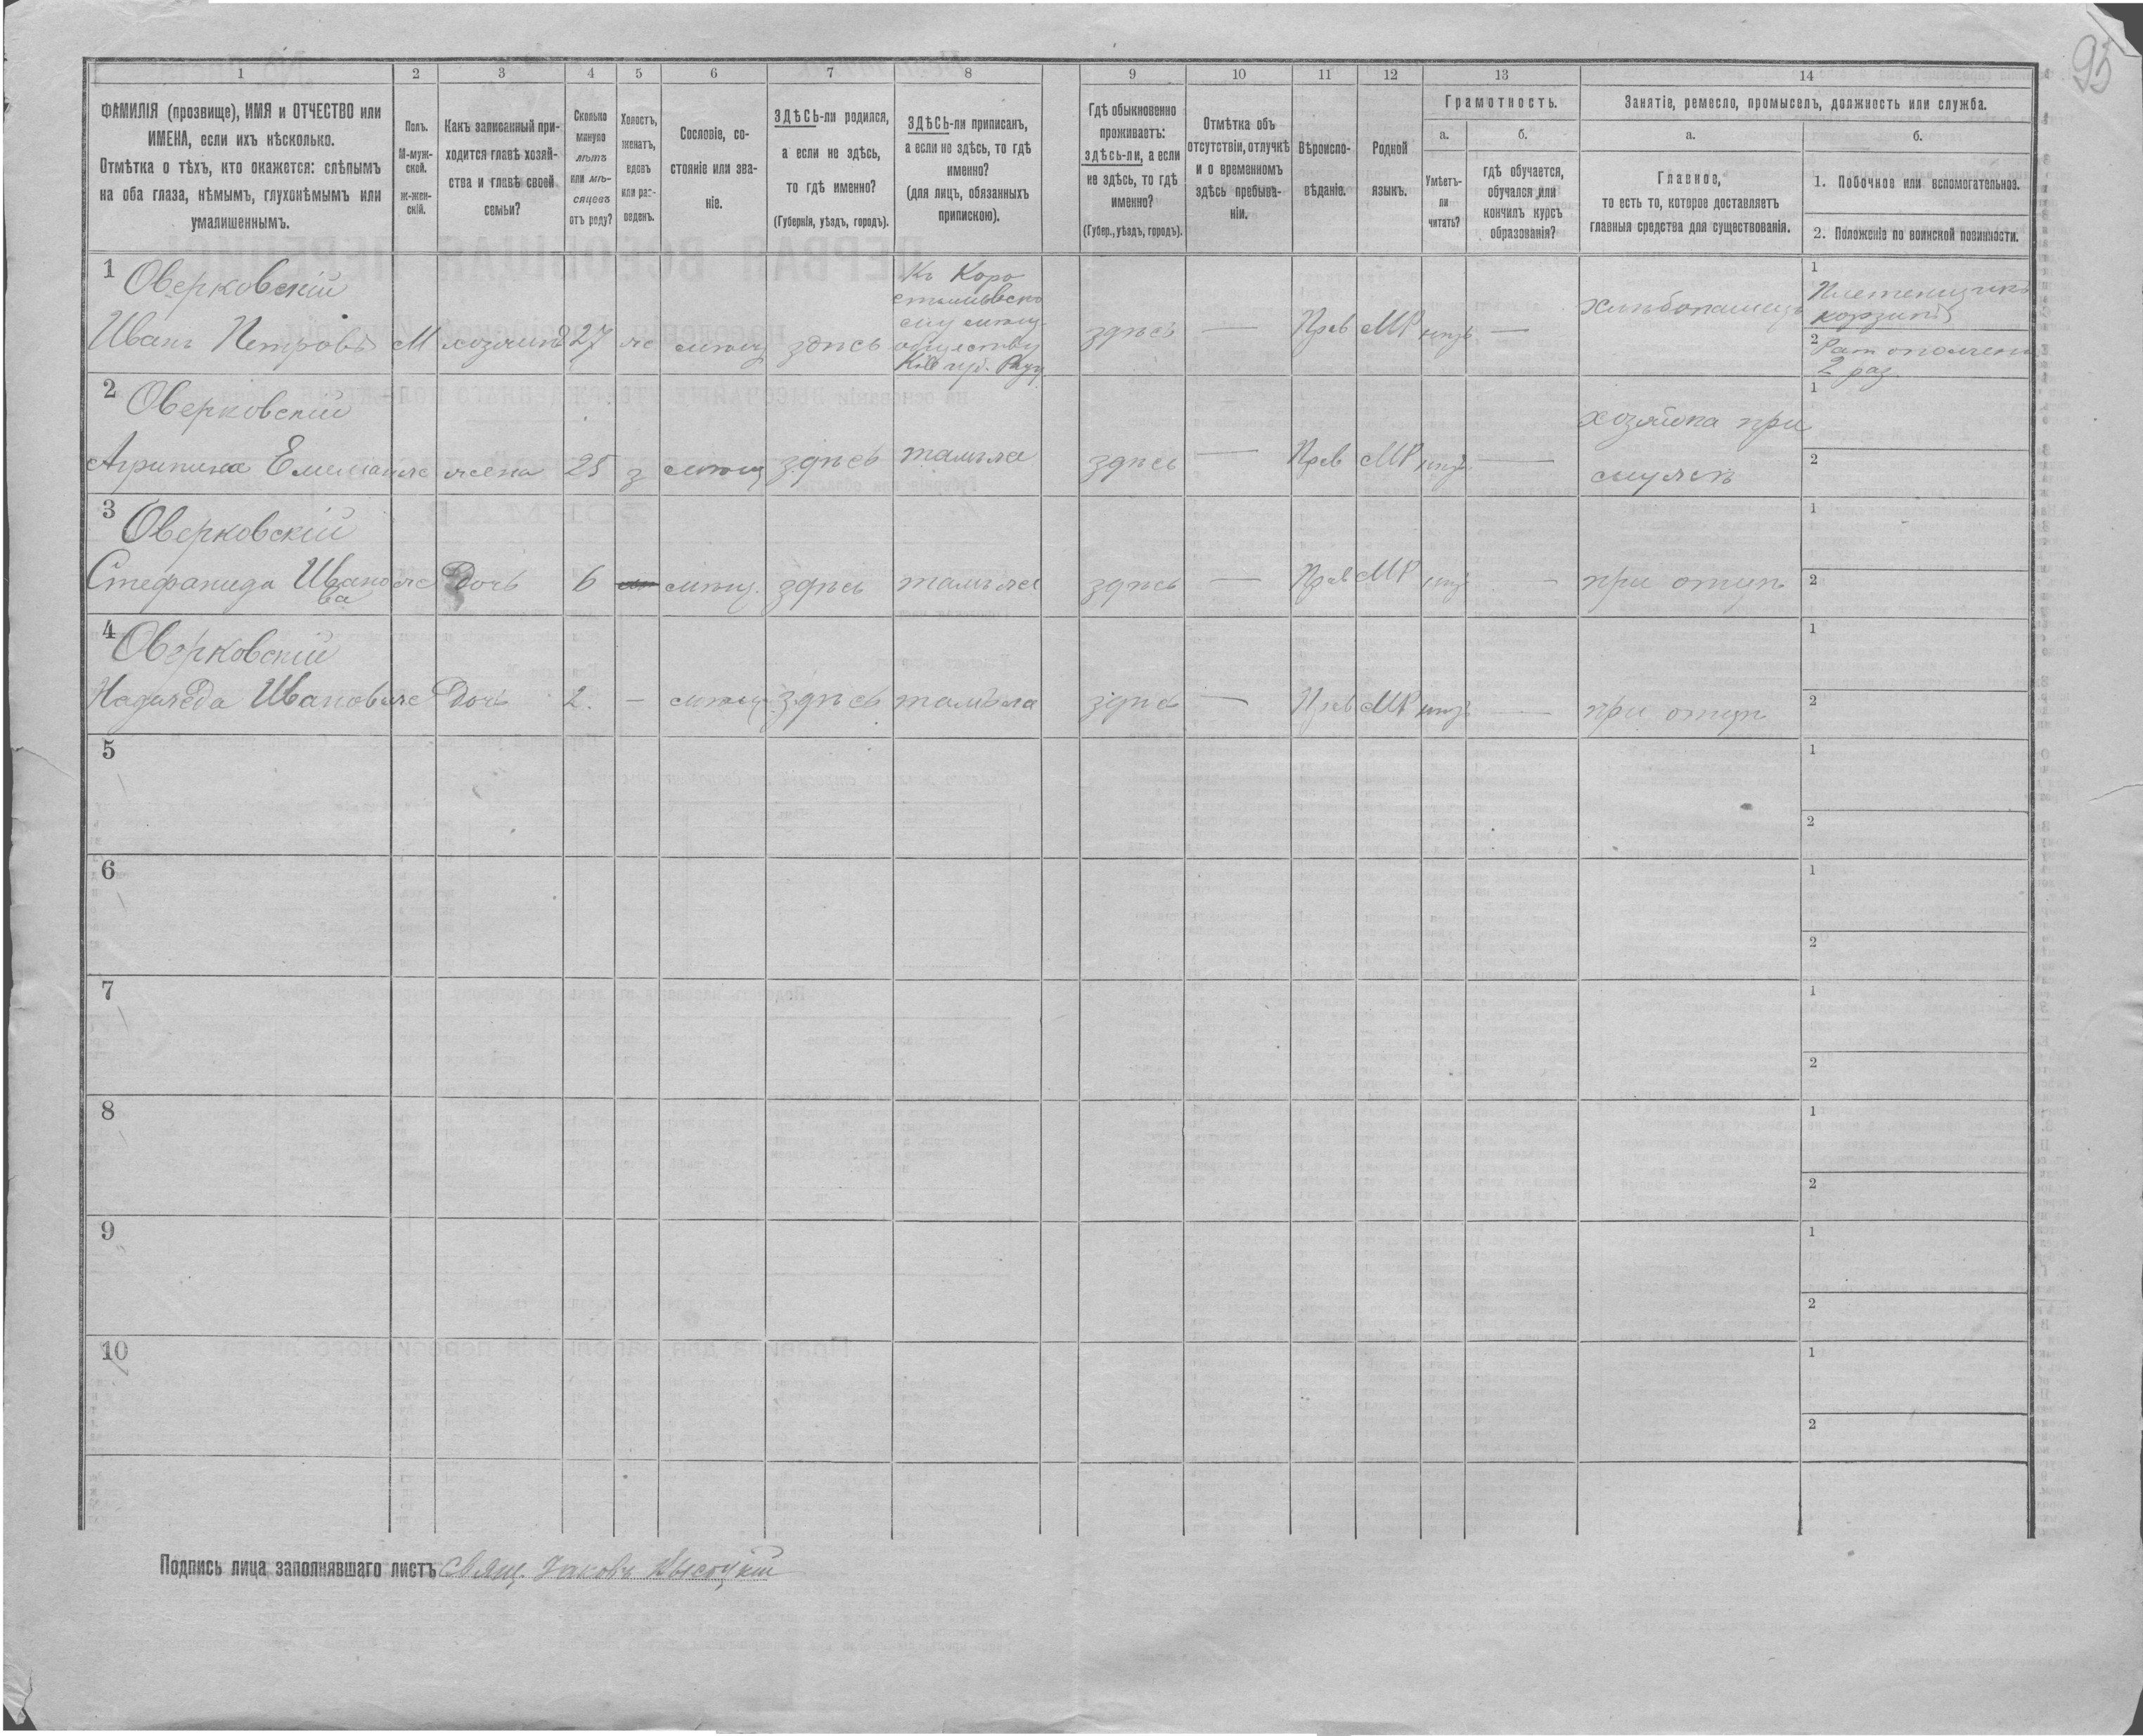 95
1 2 3 4 5 6 7 8 9 10 11 12 13 14
ФАМИЛІЯ (прозвище), ИМЯ и ОТЧЕСТВО или
ИМЕНА, если ихъ нѣсколько.
Отмѣтка о тѣхъ, кто окажется: слѣпымъ
на оба глаза, нѣмымъ, глухонѣмымъ или
умалишеннымъ.
Полъ.
М-муж-
ской.
ж-жен-
скій.
Какъ записанный при-
ходится главѣ хозяй-
ства и главѣ своей
семьи?
Сколько
минуло
лѣтъ
или мѣ-
сяцевъ
отъ роду?
Холостъ,
женатъ,
вдовъ
или раз-
веденъ.
Сословіе, со-
стояніе или зва-
ніе.
ЗДѢСЬ-ли родился,
а если не здѣсь,
то гдѣ именно?
(Губернія, уѣздъ, городъ).
ЗДѢСЬ-ли приписанъ,
а если не здѣсь, то гдѣ
именно?
(для лицъ, обязанныхъ
припискою).
Гдѣ обыкновенно
проживаетъ:
здѣсь-ли, а если
не здѣсь, то гдѣ
именно?
(Губер., уѣздъ, городъ).
Отмѣтка объ
отсутствіи, отлучкѣ
и о временномъ
здѣсь пребыва-
ніи.
Вѣроиспо-
вѣданіе.
Родной
языкъ.
Грамотность.
а.
Умѣетъ-
ли
читать?
б.
гдѣ обучается,
обучался или
кончилъ курсъ
образованія?
Занятіе, ремесло, промыселъ, должность или служба.
а.
Главное,
то есть то, которое доставляетъ
главныя средства для существованія.
б.
1. Побочное или вспомогательное.
2. Положеніе по воинской повинности.
1 Оверковскій
Иванъ Петровъ М хозяинъ 27 ж мѣщ здѣсь
Къ Коро
стышевско
му мѣщ.
обществу
здѣсь — Прав МР нѣтъ —
хлѣбопашецъ
1 Плетенщикъ
корзинъ
2 Рат ополчен
2 раз.
2 Оверковскій
Агрипина Емельян ж жена 25 з мѣщ здѣсь тамъже здѣсь — Прав МР нѣтъ —
хозяйка при
мужѣ
1
2
3 Оверковскій
Стефанида Ивано
ва
ж Дочь 6 мѣщ. здѣсь тамъже здѣсь — Прав МР нѣтъ — при отцѣ
1
2
4 Оверковскій
Надежда Иванов ж Дочь 2. — мѣщ здѣсь тамъже здѣсь — Прав МР нѣтъ — при отцѣ
1
2
5
1
2
6
1
2
7
1
2
8
1
2
9
1
2
10
1
2
Подпись лица заполнявшаго листъ Свящ. Іаковъ Высоцкій